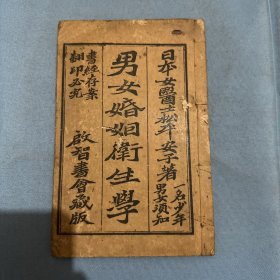 日本女醫士松本安子著
一名少年
男女須知
男女婚姻衛生學
書經存案
翻印必究
啟智書會藏版